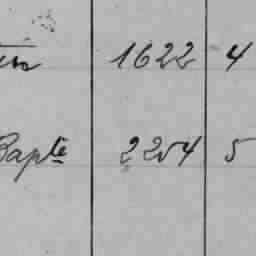 1622 4
Bapte 2254 5